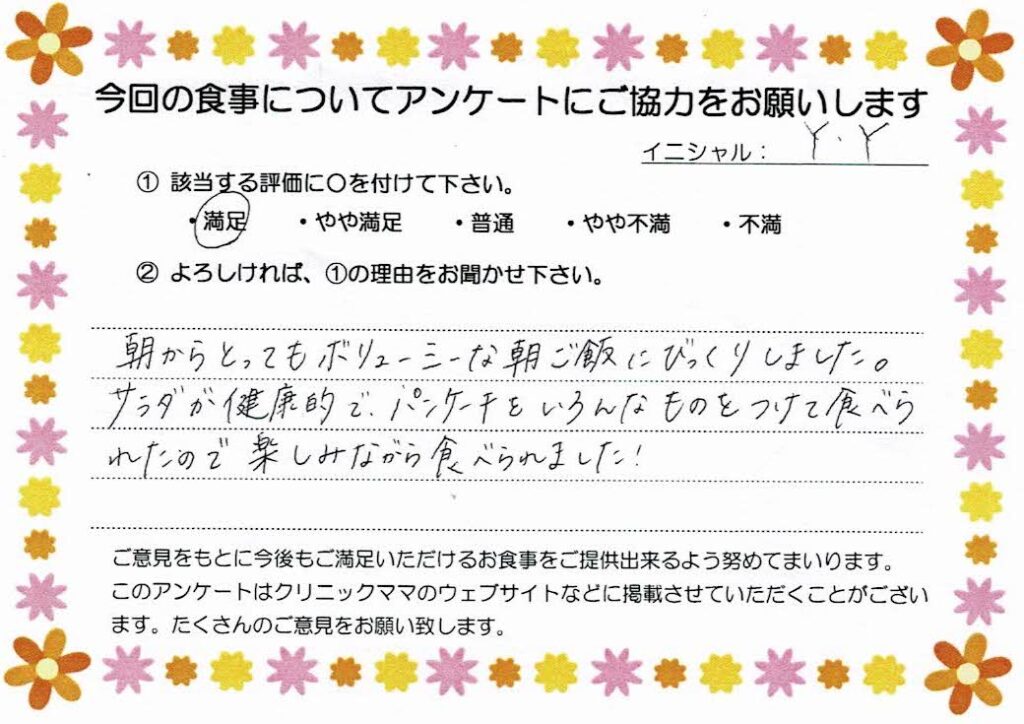 今回の食事についてアンケートにご協力をお願いします
イニシャル： Y.Y
① 該当する評価に〇を付けて下さい。
・満足 ・やや満足 ・普通 ・やや不満 ・不満
② よろしければ、①の理由をお聞かせ下さい。
朝からとってもボリューミーな朝ご飯にびっくりしました。
サラダが健康的で、パンケーキもいろんなものをつけて食べら
れたので楽しみながら食べられました！
ご意見をもとに今後もご満足いただけるお食事をご提供出来るよう努めてまいります。
このアンケートはクリニックママのウェブサイトなどに掲載させていただくことがござい
ます。たくさんのご意見をお願い致します。